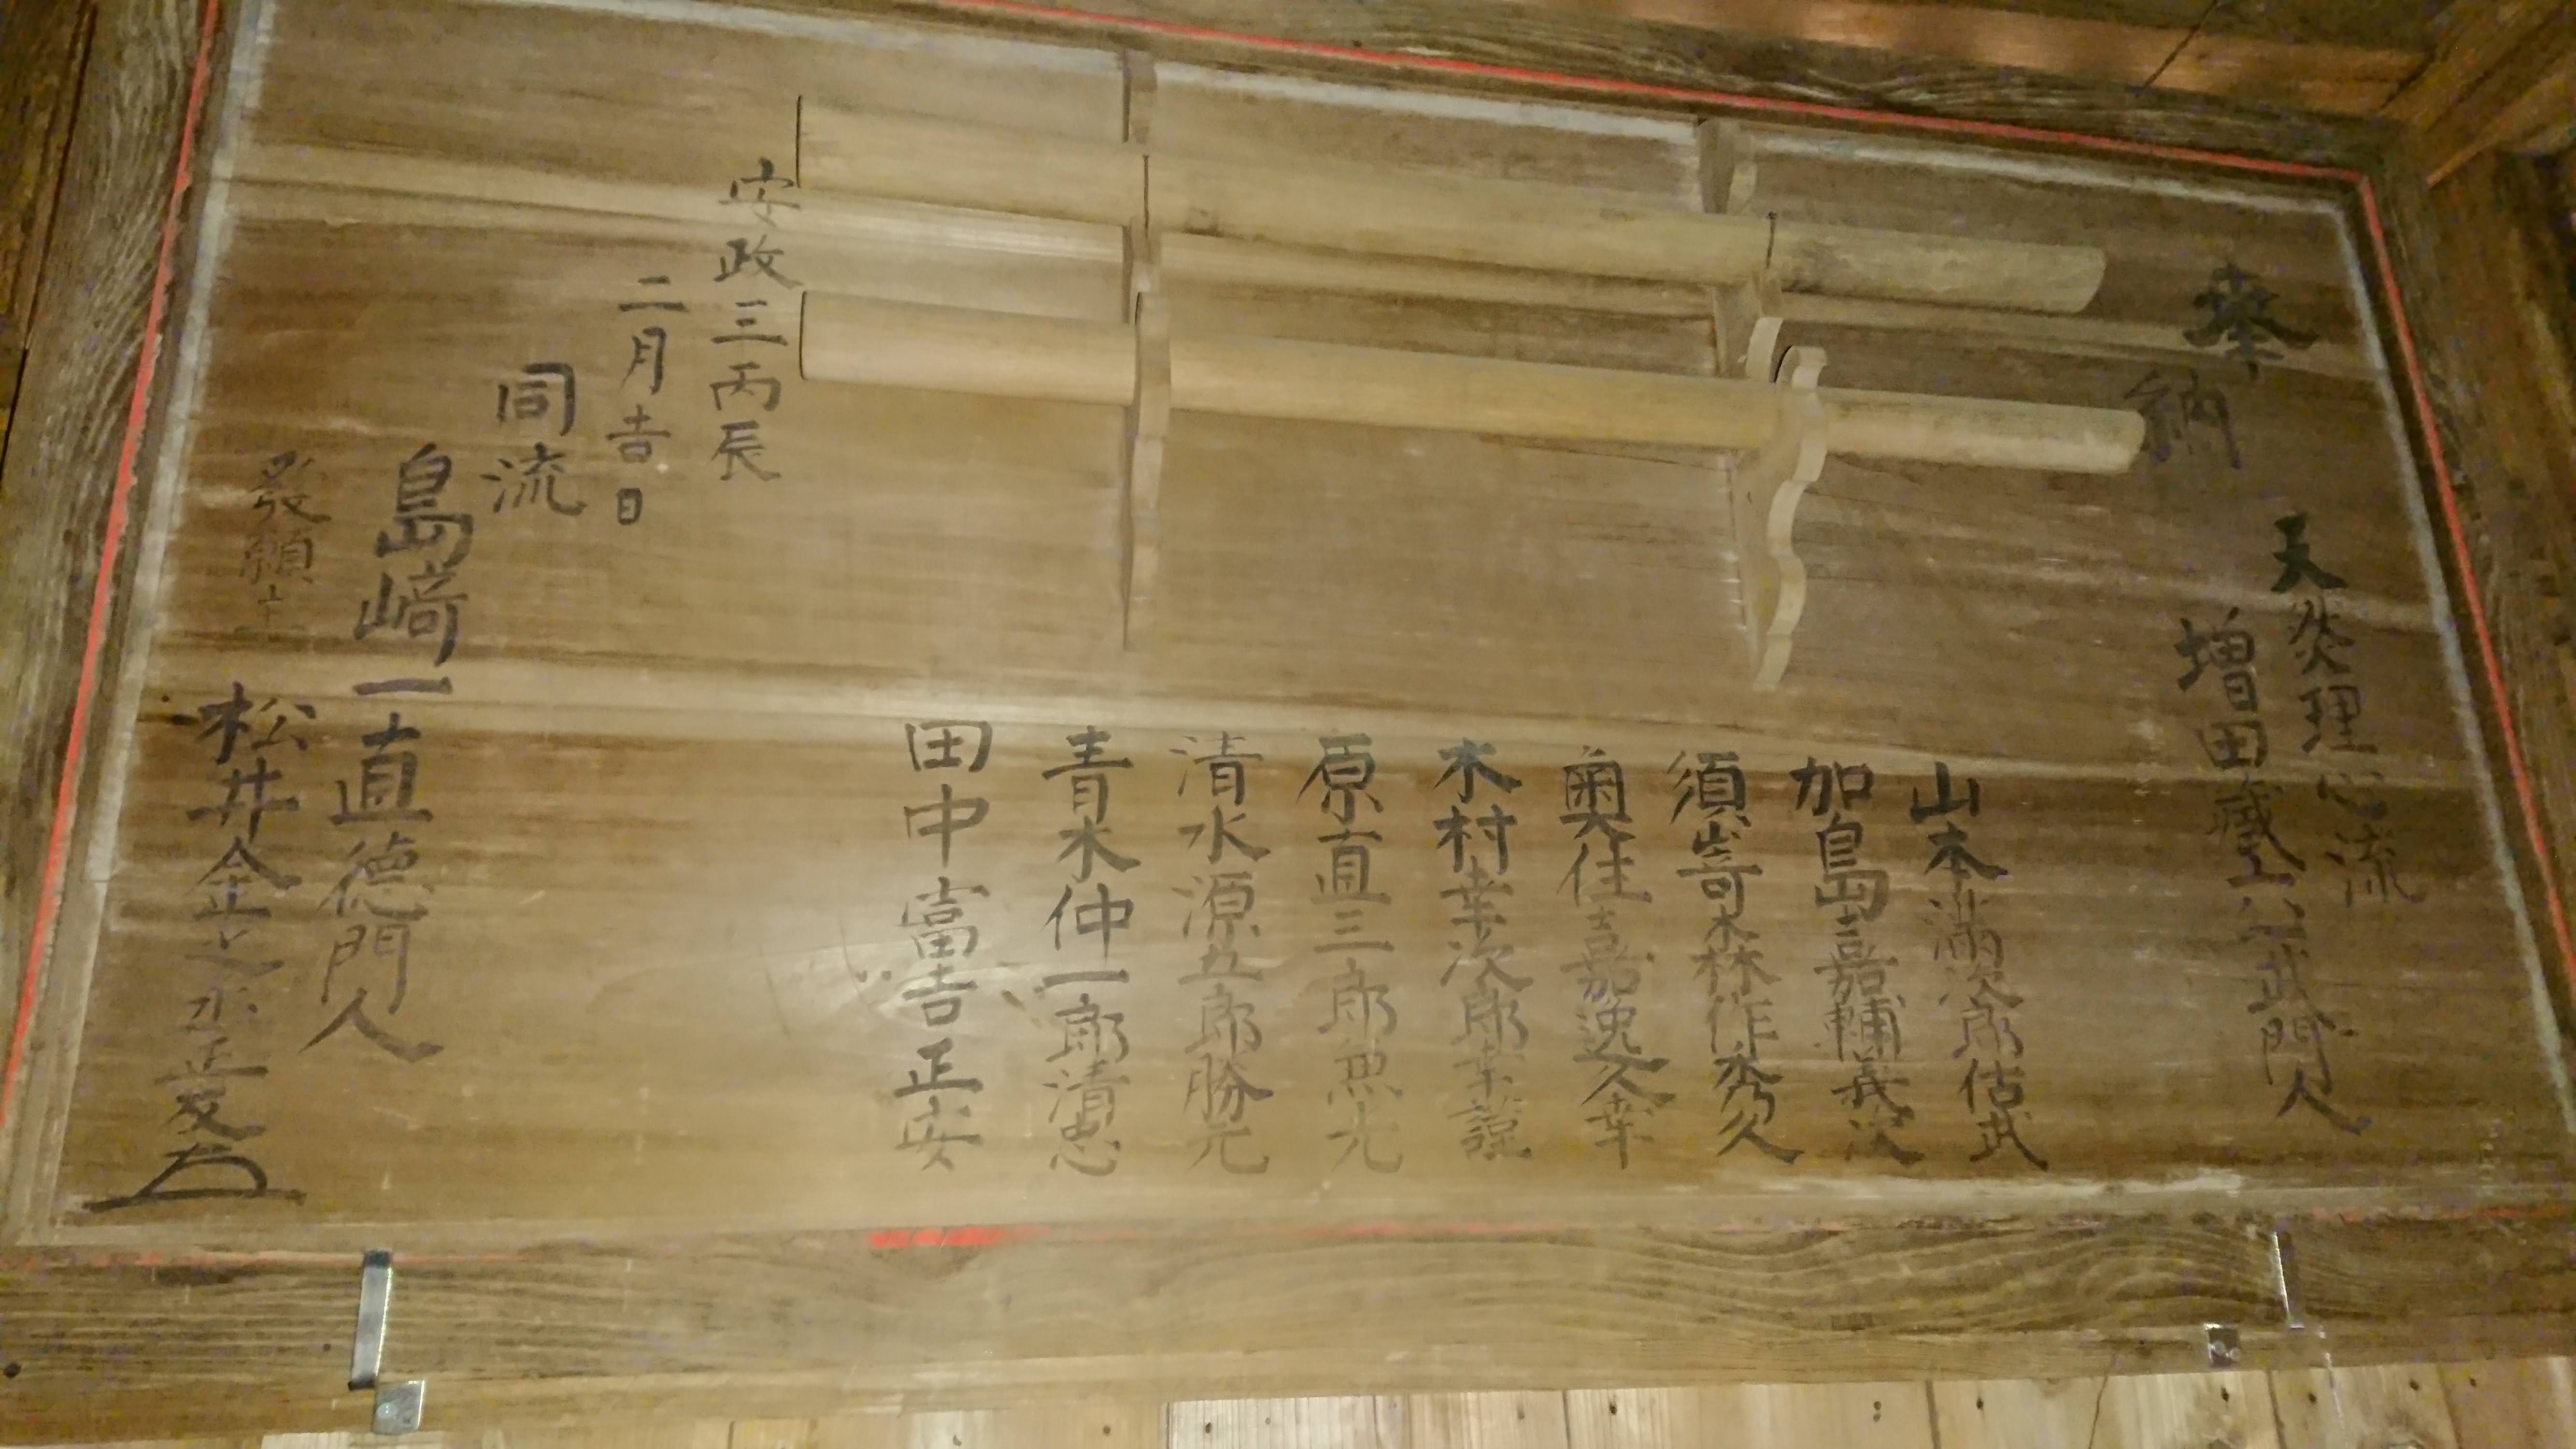 奉納
天然理心流
増田蔵六一武門人
山本満次郎信武
加島嘉輔義次
須嵜森作秀久
奥住嘉逸久幸
木村幸次郎幸謹
原直三郎魚光
清水源五郎勝元
青木仲一郎清忠
田中富吉正安
安政三丙辰
二月吉日
同流
島﨑一直徳門人
發願主
松井金之丞正友